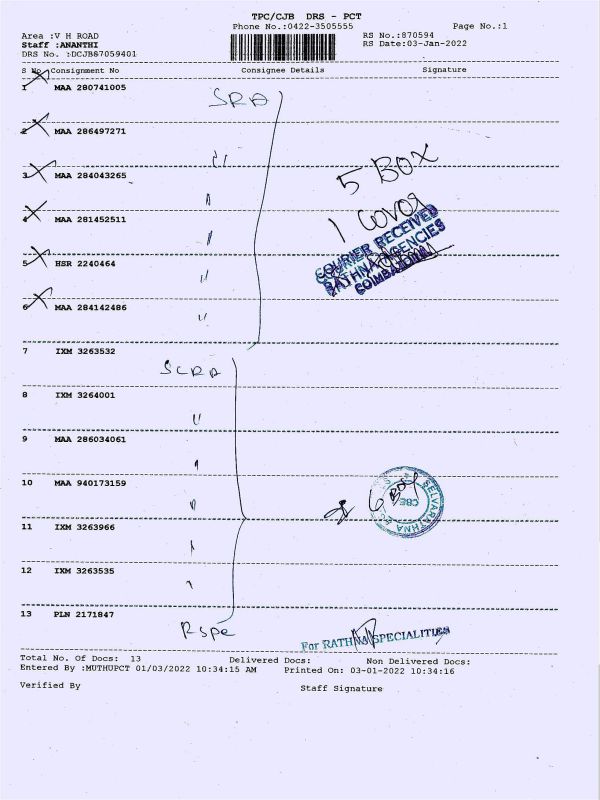 TPC/CJB DRS - PCT
Phone No.:0422-3505555 Page No.:1
Area :V H ROAD RS No.:870594
Staff :ANANTHI RS Date:03-Jan-2022
DRS No. :DCJB87059401
S No Consignment No Consignee Details Signature
1 MAA 280741005 SRA
2 MAA 286497271 "
3 MAA 284043265 "
5 BOX
4 MAA 281452511 "
1 Cover
COURIER RECEIVED
RATHNA AGENCIES
COIMBATORE
5 HSR 2240464 "
6 MAA 284142486 "
7 IXM 3263532 SCRA
8 IXM 3264001 "
9 MAA 286034061 "
10 MAA 940173159 "
6 Box
SELVARATHNA
CBE
11 IXM 3263966 "
12 IXM 3263535 "
13 PLN 2171847 Rspe
For RATHNA SPECIALITIES
Total No. Of Docs: 13 Delivered Docs: Non Delivered Docs:
Entered By :MUTHUPCT 01/03/2022 10:34:15 AM Printed On: 03-01-2022 10:34:16
Verified By Staff Signature